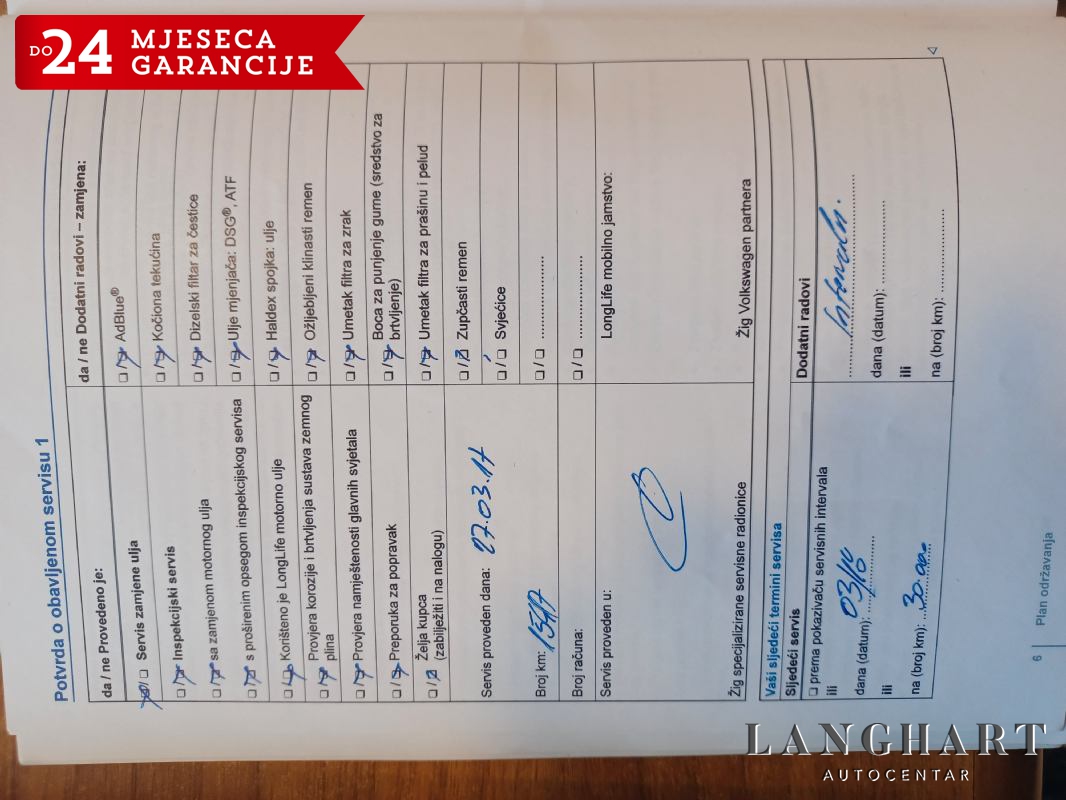 DO 24 MJESECA
GARANCIJE
Potvrda o obavljenom servisu 1
da / ne Provedeno je:
□ / □ Servis zamjene ulja
□ / □ Inspekcijski servis
□ / □ sa zamjenom motornog ulja
□ / □ s proširenim opsegom inspekcijskog servisa
□ / □ Korišteno je LongLife motorno ulje
□ / □ Provjera korozije i brtvljenja sustava zemnog
plina
□ / □ Provjera namještenosti glavnih svjetala
□ / □ Preporuka za popravak
□ / □ Želja kupca
(zabilježiti i na nalogu)
da / ne Dodatni radovi – zamjena:
□ / □ AdBlue®
□ / □ Kočiona tekućina
□ / □ Dizelski filtar za čestice
□ / □ Ulje mjenjača: DSG®, ATF
□ / □ Haldex spojka: ulje
□ / □ Ožljebljeni klinasti remen
□ / □ Umetak filtra za zrak
□ / □ Boca za punjenje gume (sredstvo za
brtvljenje)
□ / □ Umetak filtra za prašinu i pelud
□ / □ Zupčasti remen
□ / □ Svjećice
□ / □ ....................
□ / □ ....................
Servis proveden dana: 27.03.17
Broj km:
Broj računa:
Servis proveden u:
Žig specijalizirane servisne radionice
LongLife mobilno jamstvo:
Žig Volkswagen partnera
Vaši sljedeći termini servisa
Sljedeći servis
□ prema pokazivaču servisnih intervala
ili
dana (datum): 03/18
ili
na (broj km): 30.000
Dodatni radovi
dana (datum): ....................
ili
na (broj km): ....................
6 Plan održavanja
LANGHART
AUTOCENTAR